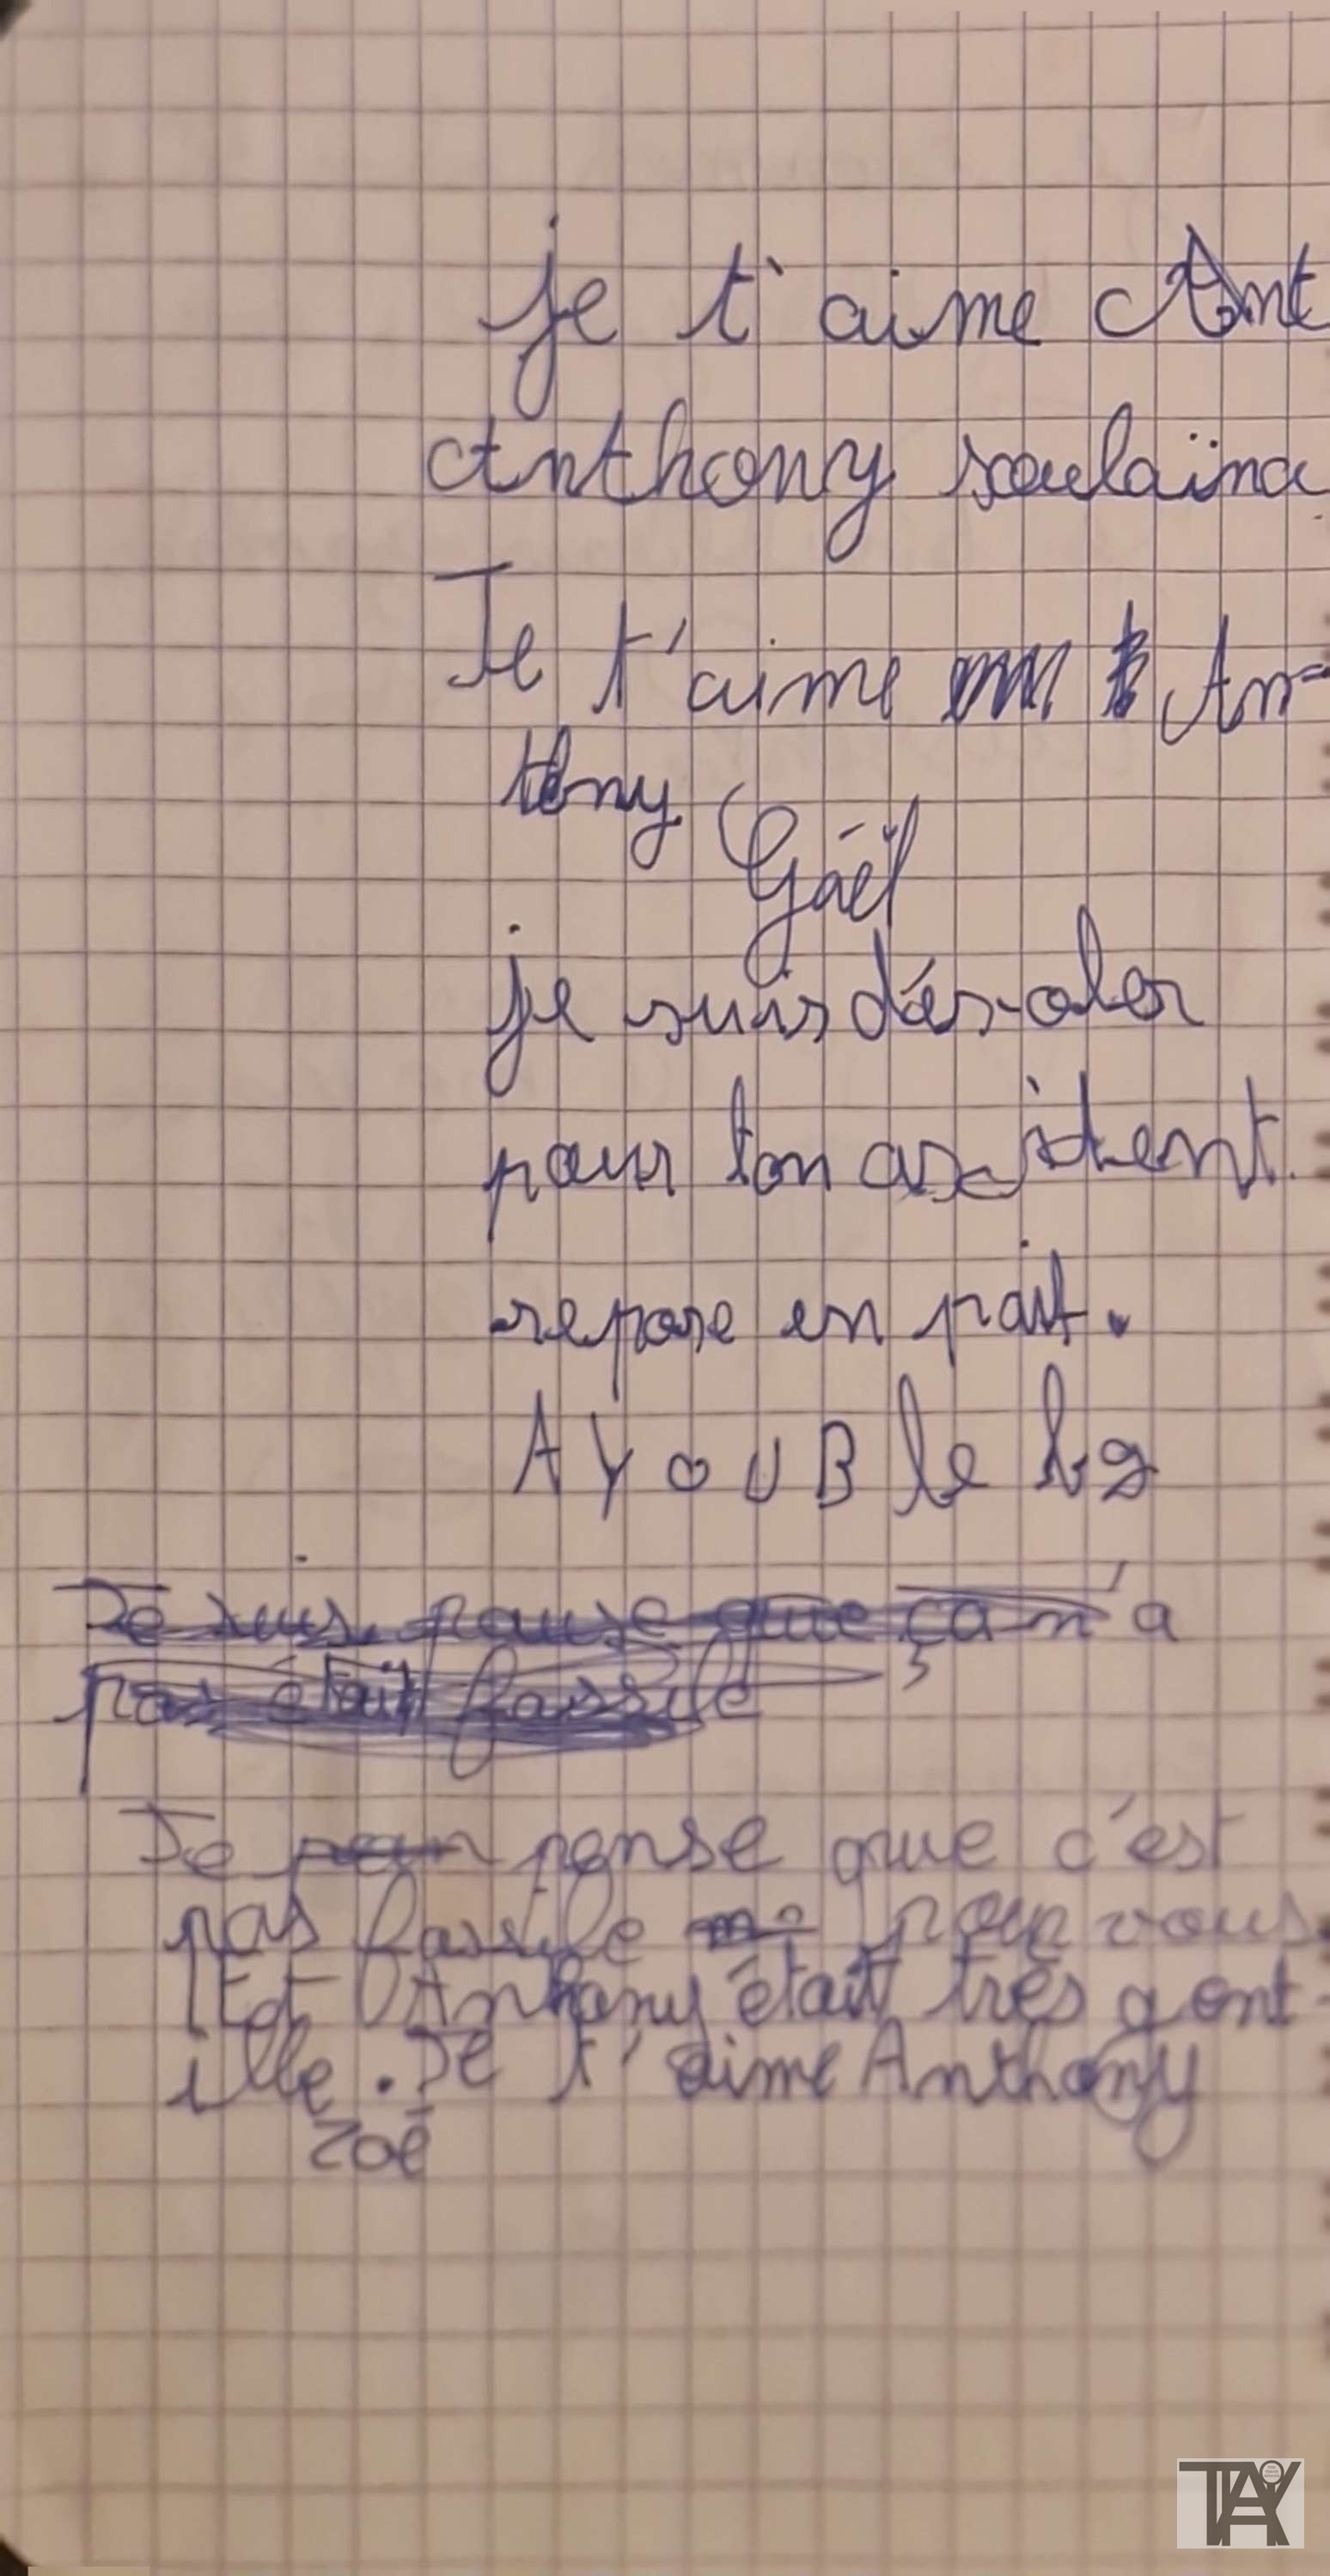 je t'aime Ant
Anthony soulaïna
Je t'aime An-
tony
Gaël
je suis désoler
pour ton asident.
repose en pait.
AYOUB le bg
Je suis pause que ça n'a
pas était fassile
Je pense que c'est
pas fassile pour vous.
Et Anthony était très gent-
ille. Je t'aime Anthony
Zoé
TAY